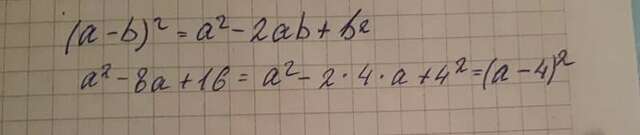 (a-b)² = a² - 2ab + b²
a² - 8a + 16 = a² - 2·4·a + 4² = (a-4)²